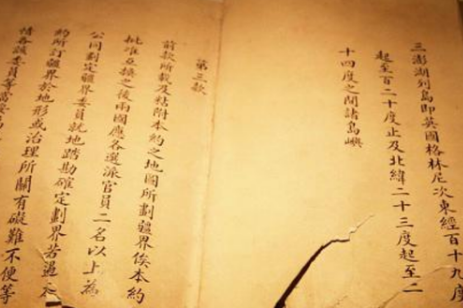 三澎湖列島即英國格林尼次東經百十九度
起至百二十度止及北緯二十三度起至二
十四度之間諸島嶼
第三款
前款所載及粘附本約之地圖所劃疆界俟本約
批准互換之後兩國應各選派官員二名以上為
公同劃定疆界委員就地踏勘確定劃界若遇本
約所訂疆界於地形或治理所關有礙難不便等
情各該委員等當妥為